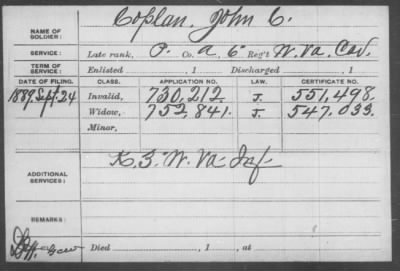 NAME OF SOLDIER: Coplan, John C.
SERVICE: Late rank, P. Co. A, 6" Reg't W. Va. Cav.
TERM OF SERVICE: Enlisted , 1 Discharged , 1
DATE OF FILING. CLASS. APPLICATION NO. LAW. CERTIFICATE NO.
1889 Sept. 24 Invalid, 730,212. J. 551,498.
Widow, 752,841. J. 547,033.
Minor,
ADDITIONAL SERVICES: K. 3" W. Va. Inf.
REMARKS:
Died , 1 , at